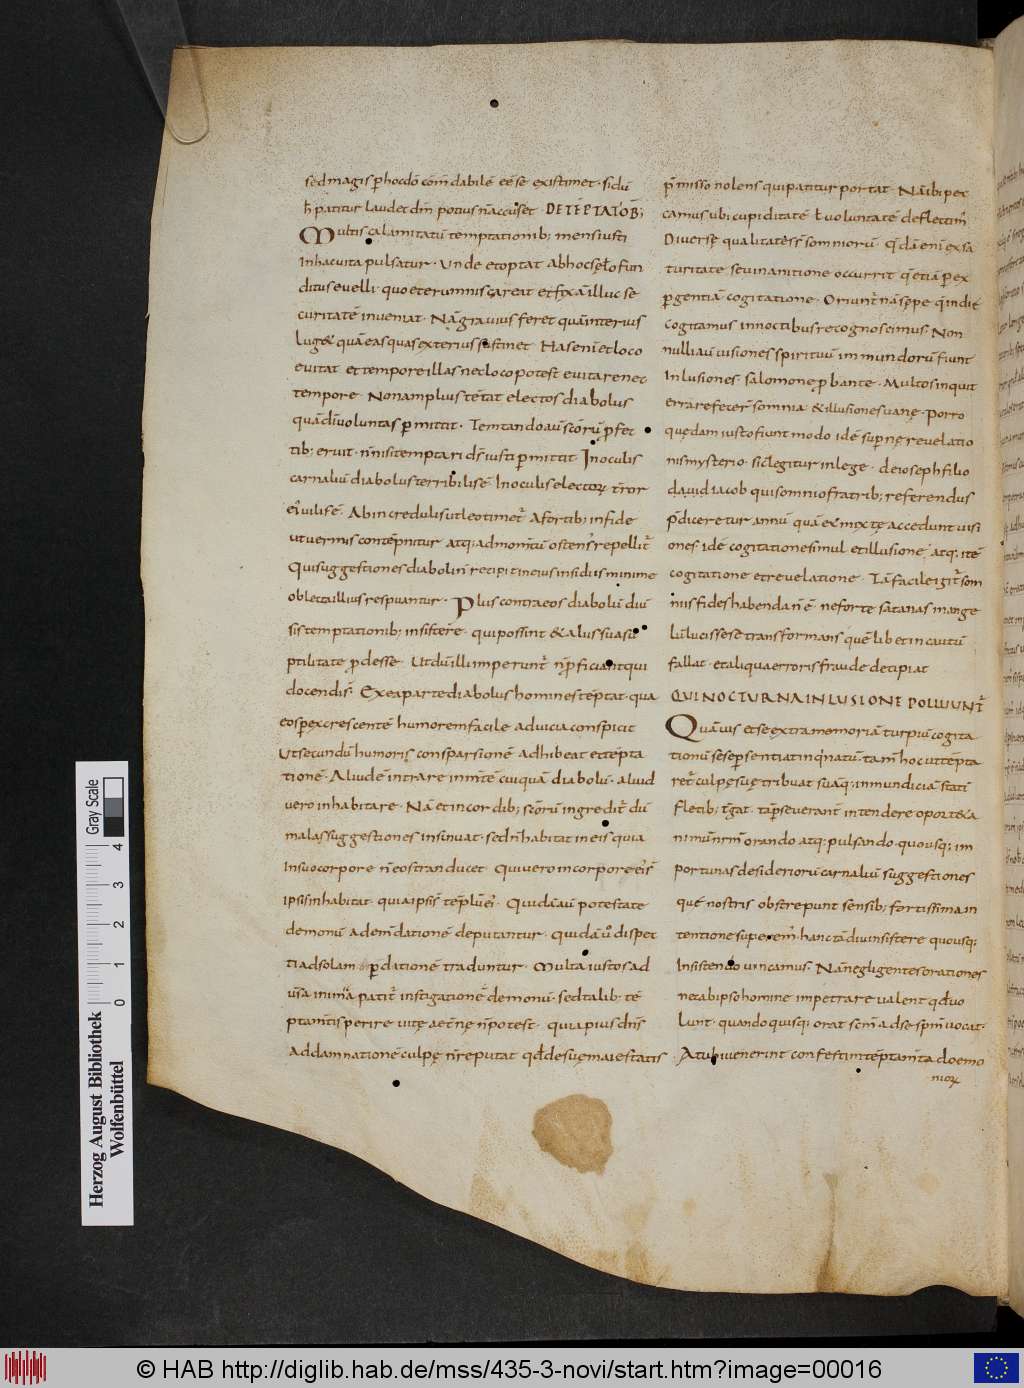 sed magis p̄ hoc dō com̄dabilē eē se existimet · si dū
h̄ patitur laudet dm̄ potius n̄ accuset DE TĒPTATOB;
Multis calamitatū temptationib; mens iusti
in hac vita pulsatur · Unde et optat ab hoc sc̄lo fun
ditus evelli · quo et erumnis careat et fixā illuc se
curitatē inveniat · Nā gravius feret quā interius
lug& quā eas quas exterius sustinet Has eni et loco
evitat et tempore illas nec loco potest evitare nec
tempore · Non amplius tētat electos diabolus
quā dī voluntas p̄mittit · Temtando au scōrū p̄fec
tib; ervit · n̄nisi temptari dr̄ iusti p̄mittit In oculis
carnaliū diabolus terribilis ē In oculis electorꝝ t̄ror
eī vilis ē Ab incredulis ut leo timet̄ A fortib; in fide
ut vermis contēpnitur atq; ad momtū ostens̄ repellit̄
Qui suggestiones diaboli n̄ recipit in eius insidiis minime
oblecta illius respuantur · Plus contra eos diabolū diū
sis temptationib; insistere · qui possint & aliis sua su
ptilitate pdesse · Ut dū illi imperunt̄ n̄ pficiant qui
docendi s̄ · Ex ea parte diabolus homines tēptat · qua
eos p excrescentē humorem facile ad vicia conspicit
Ut secundū humoris consparsionē adhibeat et tēpta
tionē · Aliud ē intrare in mītē cuiquā diabolū · aliud
vero inhabitare · Nā et in cordib; scōrū ingredit̄ dū
malas suggestiones insinuat · sed n̄ habitat in eis quia
in suo corpore n̄ eos tranducet Qui vero in corpore eīs̄
ipsis inhabitat · quia ipsi s̄ tēplū eī · Quidā au potestate
demonū ad em̄dationē deputantur · Quidā ū dispec
ti ad solam pdationē traduntur · Multa iustos ad
v̄sa in um̄a patit̄ instigatione demonū · sed talib; tē
ptamtis perire vitę aet̄nę n̄ potest · quia pius dn̄s
ad damnationē culpę n̄ reputat qd̄ de suę maiestatis
p̄misso nolens qui patitur portat · Nā ibi pec
camus ubi cupiditatē ł voluntate deflectim̄
Diversę qualitates s̄ somniorū · qdā enī ex sa
turitate seu inanitione occurrit q̄ etiā p ex
p̄gentiā cogitatione · Oriunt̄ nā sępe q̄ in die
cogitamus in noctibus recognoscimus · Non
nulli au visiones spirituū immundorū fiunt
inlusiones salomone pbante · Multos inquit
errare fecer̄ somnia & illusiones vanę · Porro
quędam iusto fiunt modo idē supernę revelatio
nis mysterio · sic legitur in lege · de ioseph filio
david iacob qui somnio fratrib; referendus
p̄diceretur annū quā ex mixtę accedunt visi
ones · idē cogitatione simul et illusione atq; itē
cogitatione et revelatione · Tā facile igit̄ som
niis fides habenda n̄ ē ne forte satanas in ange
lū lucis sese transformans quēlibet incautū
fallat · et aliqua erroris fraude decipiat
QUI NOCTURNA INLUSIONE POLLUUNT̄
Quāvis etse extra memoriā turpiū cogita
tionū sese psentiat inqͥnatū · tam̄ hoc ut tēpta
ret̄ culpę suę tribuat suāq; inmundiciā stati
fletib; t̄gat · tā pseverant̄ intendere oport& a
nimū n̄r̄m orando atq; pulsando · quousq; im
portunas desideriorū carnaliū suggestiones
quē nostris obstrepunt sensib; fortissima in
tentione superem̄ · hanc tādiu insistere quousq;
insistendo vincamus · Nā negligentes orationes
ne ab ipso homine impetrare valent qd̄ vo
lunt · quando quisq; orat scm̄ ad se spm̄ vocat ·
At ubi venerint confestim tēptamta doemo
niorꝝ
Herzog August Bibliothek
Wolfenbüttel
Gray Scale
0 1 2 3 4
© HAB http://diglib.hab.de/mss/435-3-novi/start.htm?image=00016